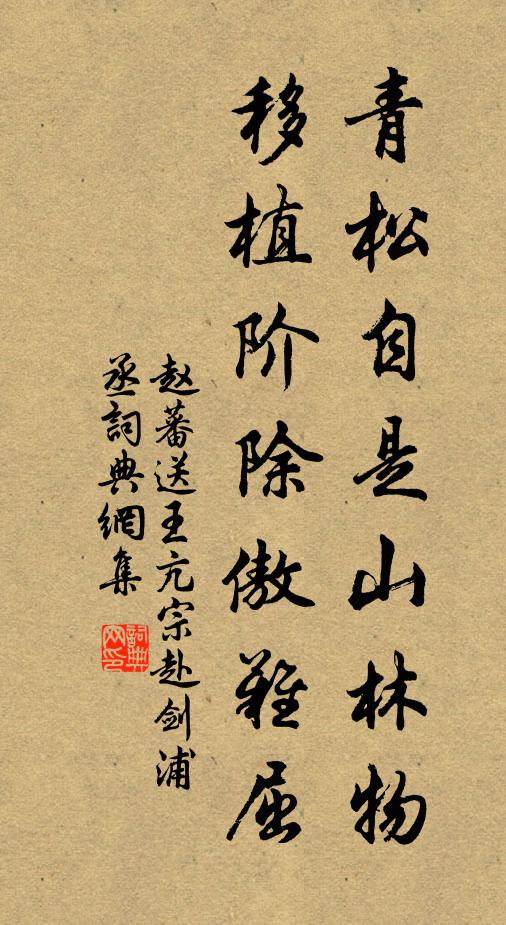 青松自是山林物
移植阶除傲难屈
赵蕃送王亢宗赴剑浦
丞詞典網集
詞典
网印